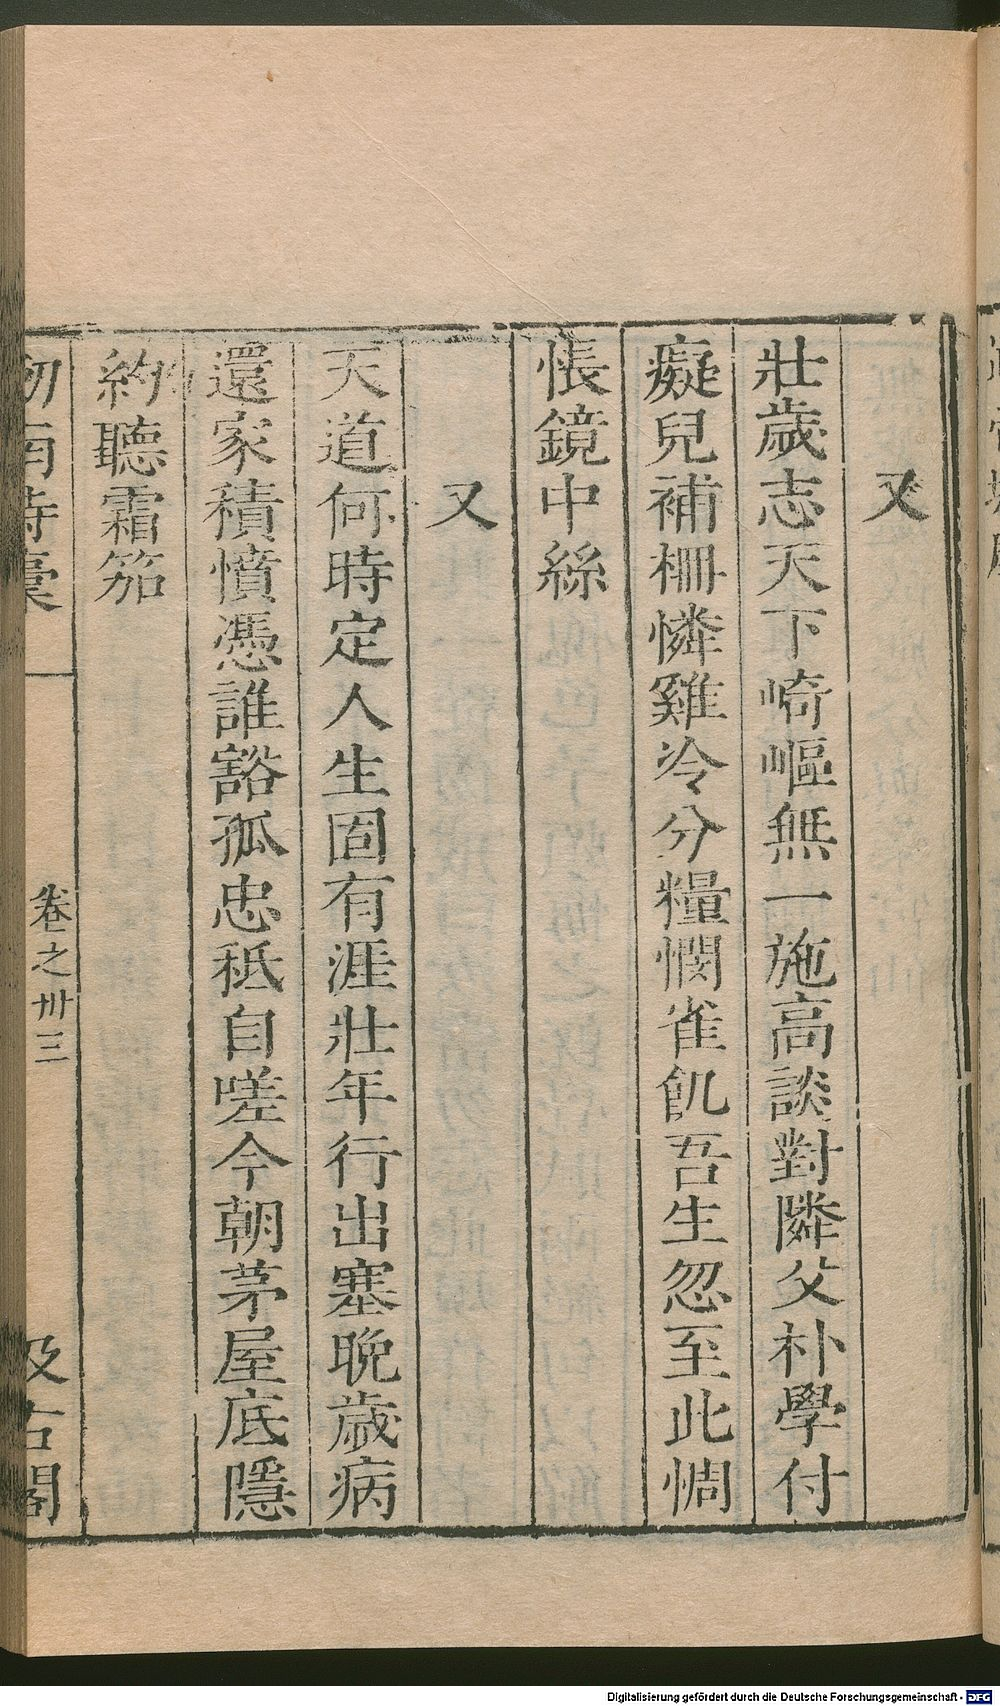 又
壯歲志天下崎嶇無一施高談對隣父朴學付
癡兒補柵憐雞冷分糧憫雀飢吾生忽至此惆
悵鏡中絲
又
天道何時定人生固有涯壯年行出塞晚歲病
還家積憤憑誰豁孤忠秪自嗟今朝茅屋底隱
約聽霜笳
劒南詩稾
卷之卅三
汲古閣
Digitalisierung gefördert durch die Deutsche Forschungsgemeinschaft - DFG